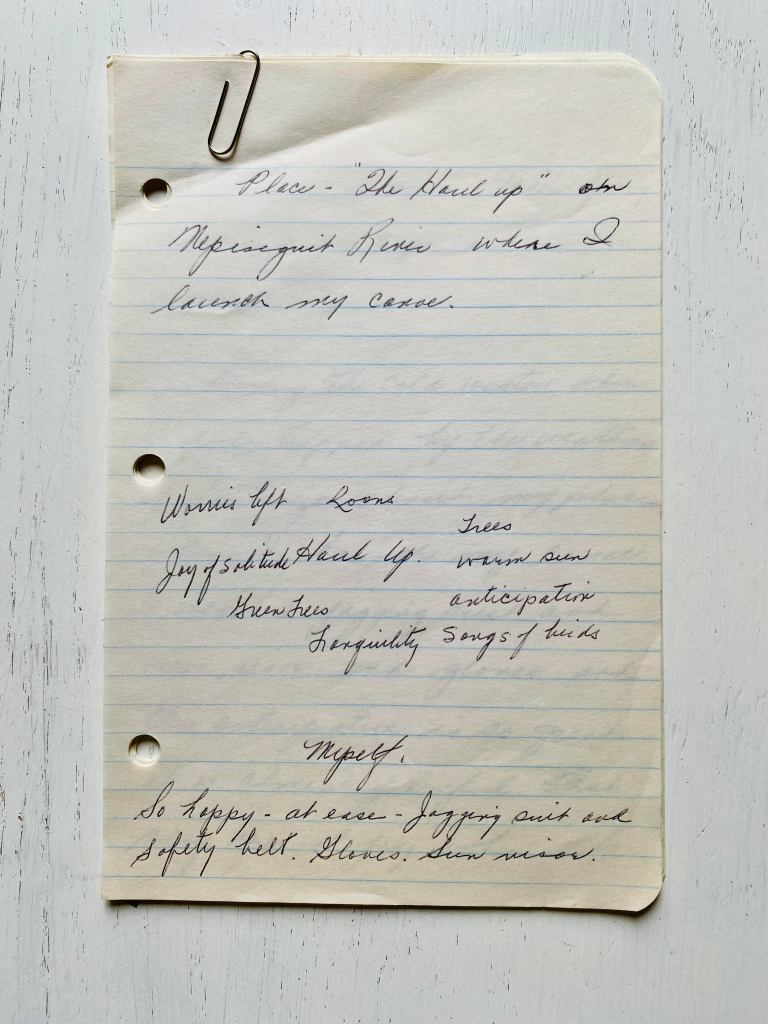 Place - "The Haul up" on
Nepisiguit River where I
launch my canoe.
Worries lift Loons
Trees
Joy of Solitude Haul Up. warm sun
Green Trees anticipation
Tranquility Songs of birds
Myself.
So happy - at ease - Jogging suit and
safety belt. Gloves. Sun visor.